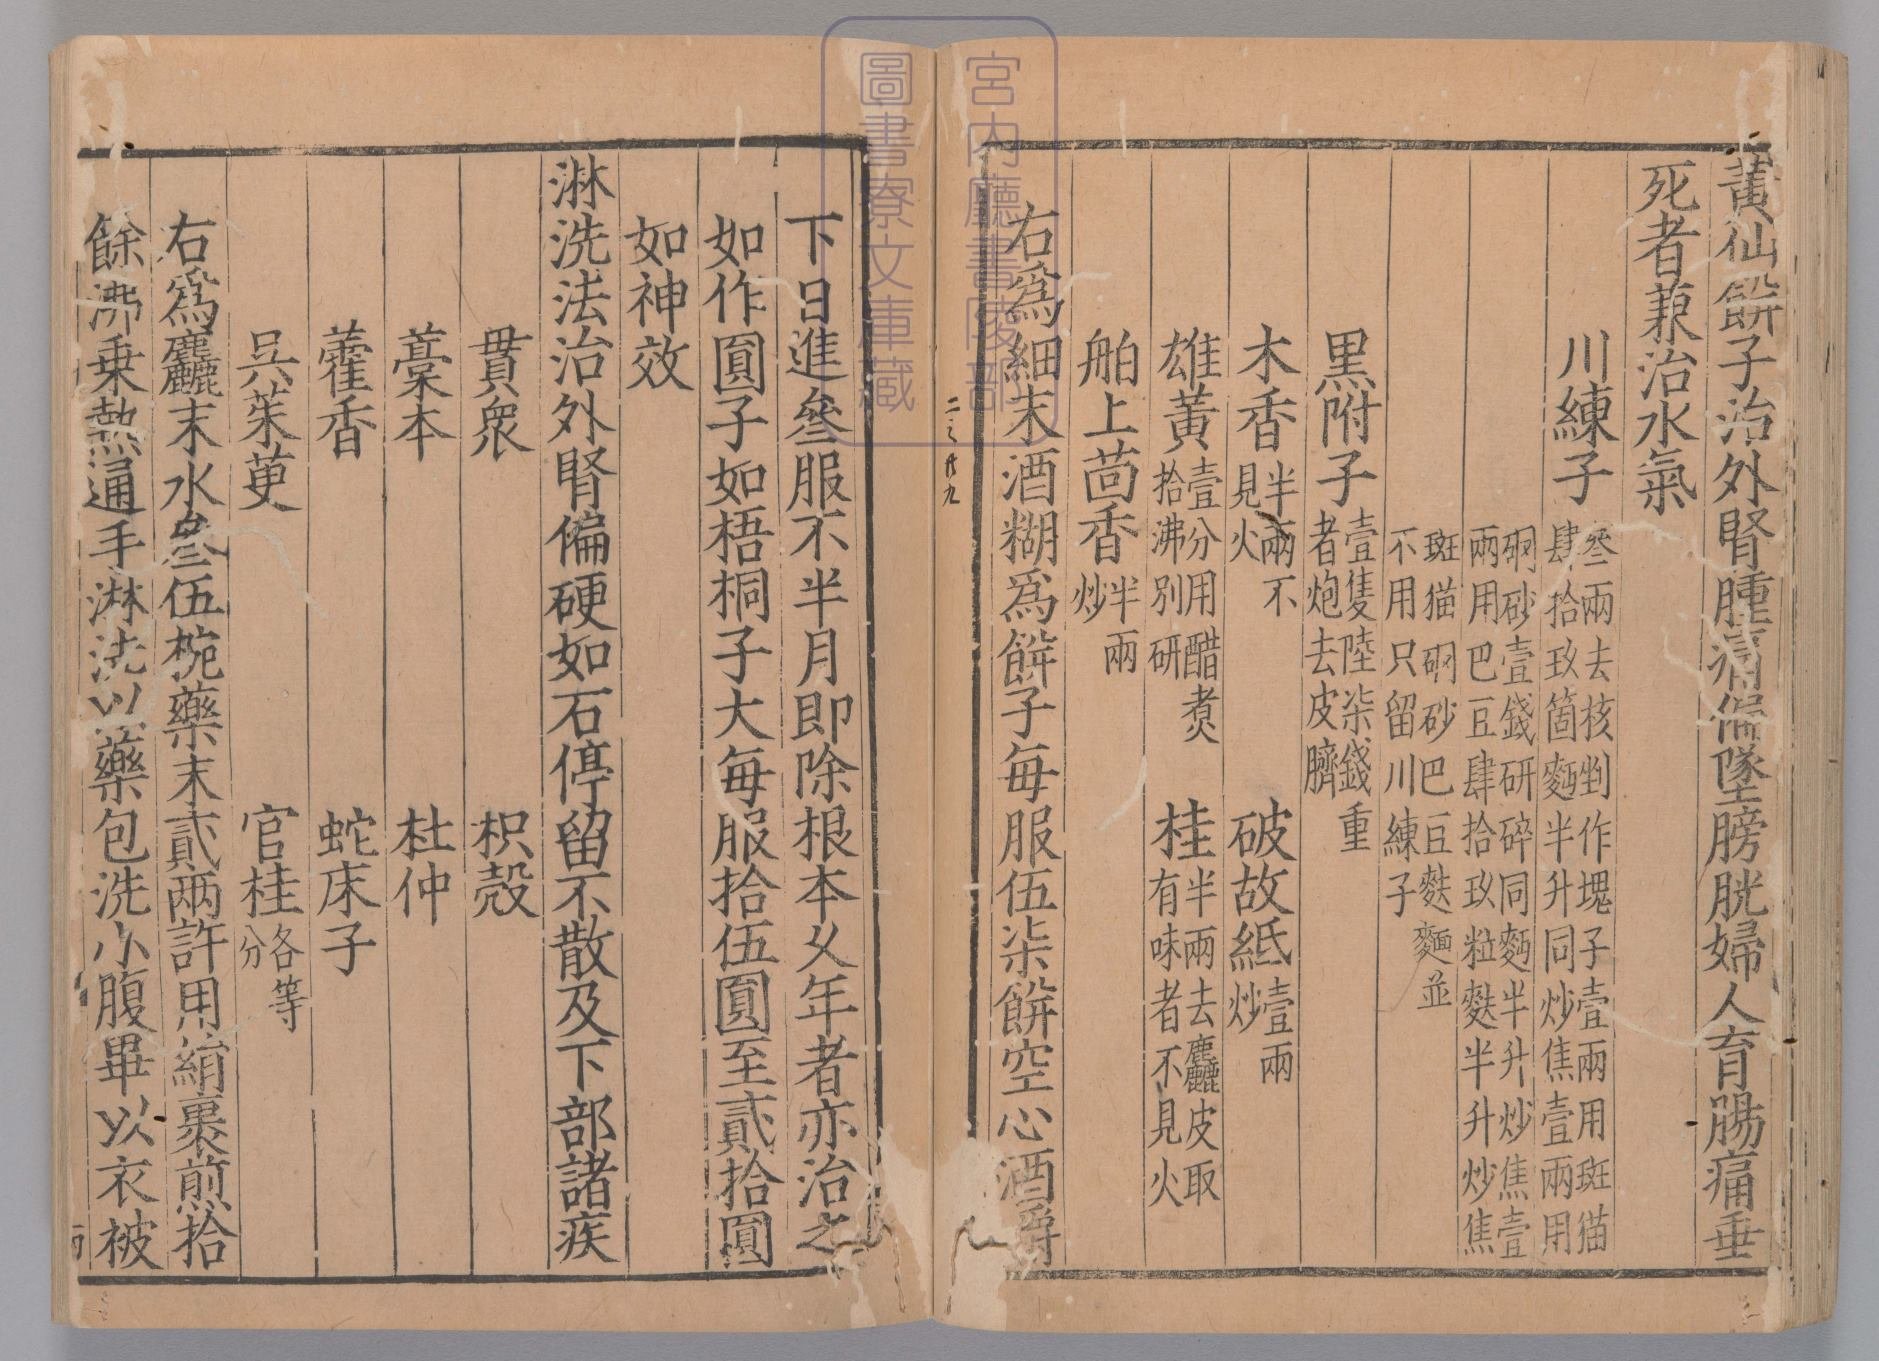 黃仙餅子治外腎腫痛偏墜膀胱婦人育腸痛垂
死者兼治水氣
川練子叁兩去核剉作塊子壹兩用斑猫
肆拾玖箇麪半升同炒焦壹兩用
硇砂壹錢研碎同麪半升炒焦壹
兩用巴豆肆拾玖粒麩半升炒焦
斑猫硇砂巴豆麩麵並
不用只留川練子
黑附子壹隻陸柒錢重
者炮去皮臍
木香半兩不
見火
破故紙壹兩
炒
雄黃壹分用醋煮
拾沸別研
桂半兩去麤皮取
有味者不見火
舶上茴香半兩
炒
右爲細末酒糊爲餅子每服伍柒餅空心酒嚼
下日進叁服不半月即除根本久年者亦治之
如作圓子如梧桐子大每服拾伍圓至貳拾圓
如神效
淋洗法治外腎偏硬如石停留不散及下部諸疾
貫衆
枳殼
藁本
杜仲
藿香
蛇床子
吳茱萸
官桂各等
分
右爲麤末水叁伍椀藥末貳兩許用絹裹煎拾
餘沸乗熱通手淋洗以藥包洗小腹畢以衣被
宮内廳書陵部
圖書寮文庫藏